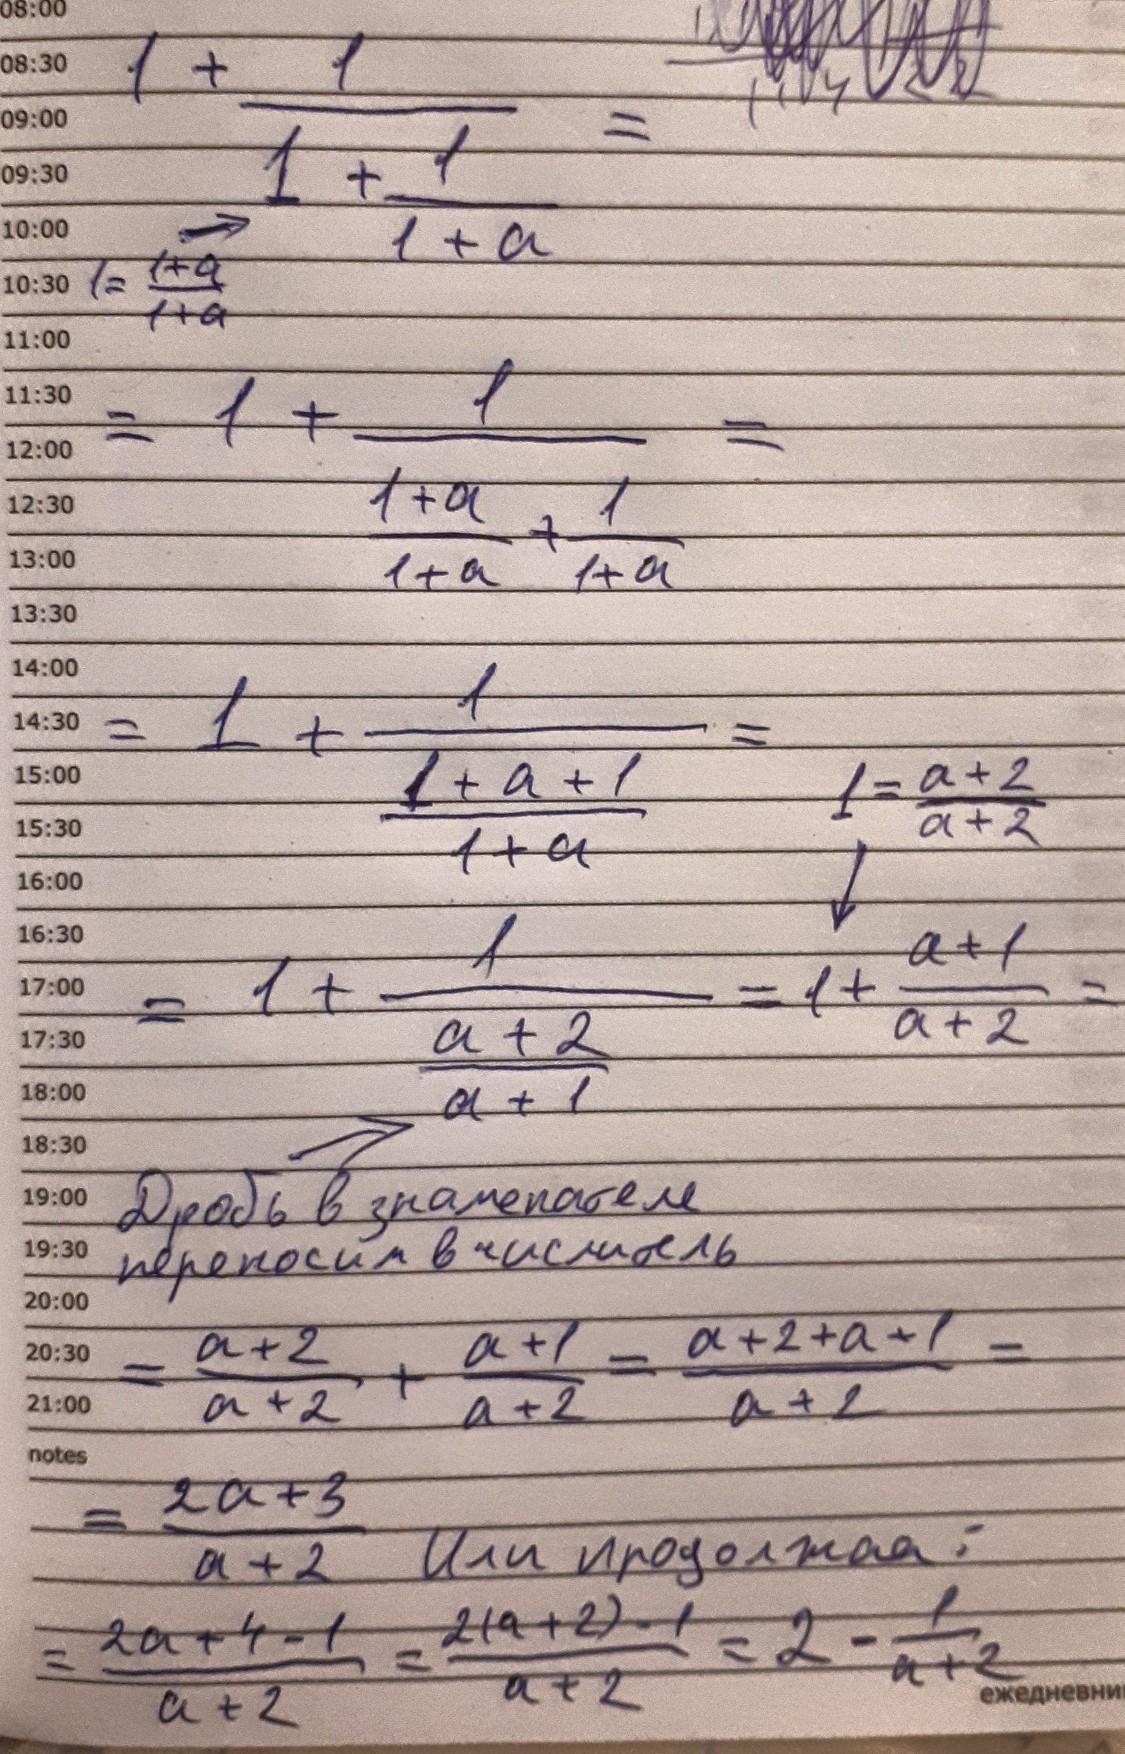 08:00
08:30
09:00
09:30
10:00
10:30
11:00
11:30
12:00
12:30
13:00
13:30
14:00
14:30
15:00
15:30
16:00
16:30
17:00
17:30
18:00
18:30
19:00
19:30
20:00
20:30
21:00
notes
1 + 1
=
1 + 1
1 + a
→
1 = 1+a
1+a
= 1 + 1 =
1+a + 1
1+a 1+a
= 1 + 1 =
1 + a + 1
1 + a
1 = a + 2
a + 2
↓
= 1 + 1 = 1 + a + 1 =
a + 2 a + 2
a + 1
Дробь в знаменателе
переносим в числитель
= a + 2 + a + 1 = a + 2 + a + 1 =
a + 2 a + 2 a + 2
= 2a + 3
a + 2 Или продолжая:
= 2a + 4 - 1 = 2(a + 2) - 1 = 2 - 1
a + 2 a + 2 a + 2
ежедневни